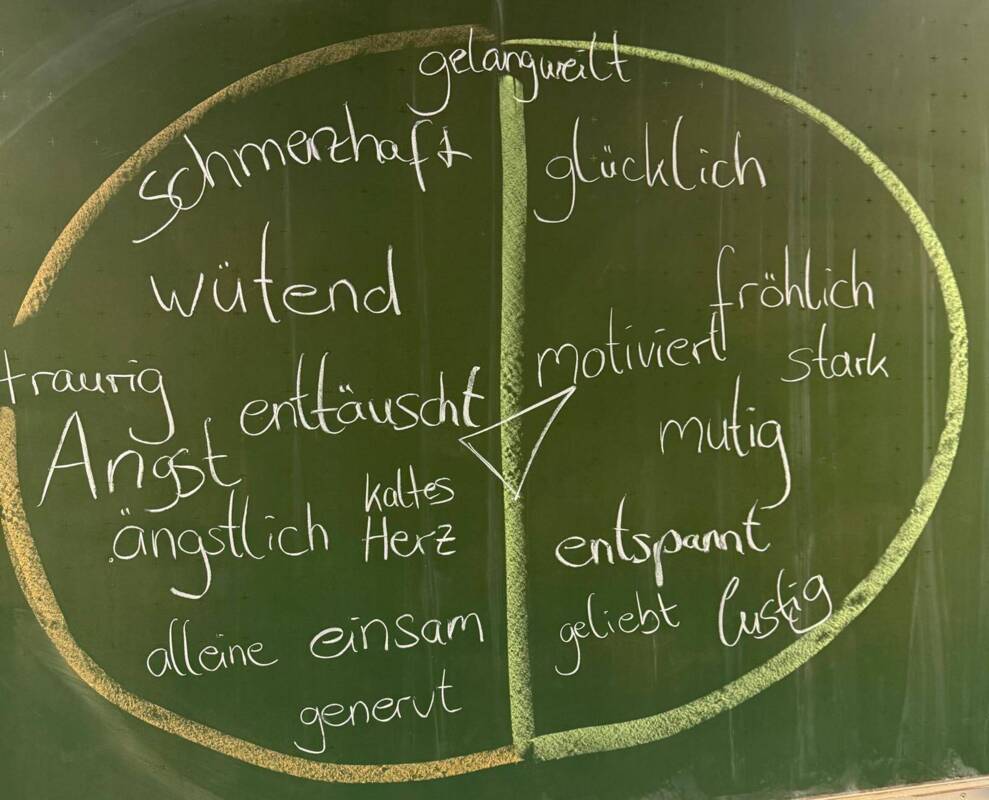 gelangweilt
schmerzhaft
glücklich
wütend
fröhlich
motiviert
stark
traurig
enttäuscht
mutig
Angst
kaltes
Herz
ängstlich
entspannt
alleine
einsam
geliebt
lustig
genervt